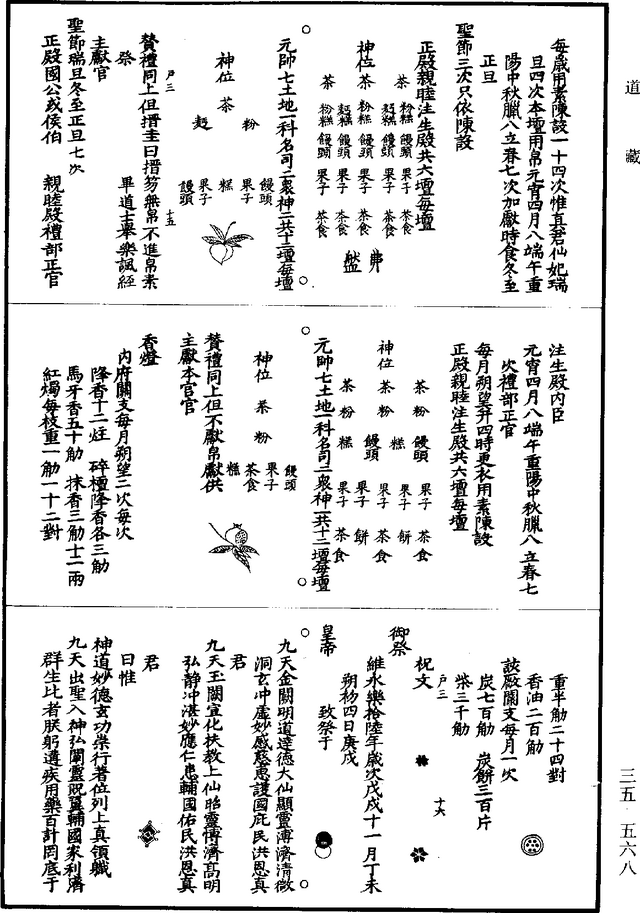 道藏
每歲用素陳設一十四次惟真君仙妃瑞
旦四次本壇用帛元宵四月八端午重
陽中秋臘八立春七次加獻時食冬至
正旦
聖節三次只依陳設
正殿親睦注生殿共六壇每壇
茶 粉糕 饅頭 果子 茶食
茶 麪糕 饅頭 果子 茶食
神位 茶 粉糕 饅頭 果子 茶食
茶 麪糕 饅頭 果子 茶食
茶 粉糕 饅頭 果子 茶食
元帥七土地一科名司二衆神二共十二壇每壇
粉 饅頭
果子
神位 茶 糕
果子
麪 饅頭
戶三 十五
贊禮同上但搢圭曰搢笏無帛不進帛素
祭 畢道士舉樂諷經
主獻官
聖節瑞旦冬至正旦七次
正殿國公或侯伯 親睦殿禮部正官
注生殿內臣
元宵四月八端午重陽中秋臘八立春七
次禮部正官
每月朔望并四時更衣用素陳設
正殿親睦注生殿共六壇每壇
茶 饅頭 果子 茶食
茶 粉 糕 果子 餅
神位 茶 饅頭 果子 茶食
茶 粉 糕 果子 餅
茶 饅頭 果子 茶食
元帥七土地一科名司二衆神一共十二壇每壇
饅頭
粉 果子
神位 茶 茶食
糕
贊禮同上但不獻帛獻供
主獻本官官
香燈
內府關支每月朔望二次每次
降香十二炷 碎檀降香各三觔
馬牙香五十觔 抹香三觔十一兩
紅燭每枝重一觔一十二對
重半觔二十四對
香油二百觔
該厰關支每月一次
炭七百觔 炭餅三百片
柴三千觔
戶三 十六
祝文
御祭
維永樂拾陸年歲次戊戌十一月丁未
朔初四日庚戌
皇帝 致祭于
九天金闕明道達德大仙顯靈溥濟清微
洞玄沖虛妙感慈惠護國庇民洪恩真
君
九天玉闕宣化扶教上仙昭靈博濟高明
弘靜沖湛妙應仁惠輔國佑民洪恩真
君
曰惟
神道妙德玄功崇行著位列上真領職
九天出聖入神弘闡靈貺翼輔國家利濟
群生比者朕躬遘疾用藥百計罔底于
三五·五六八